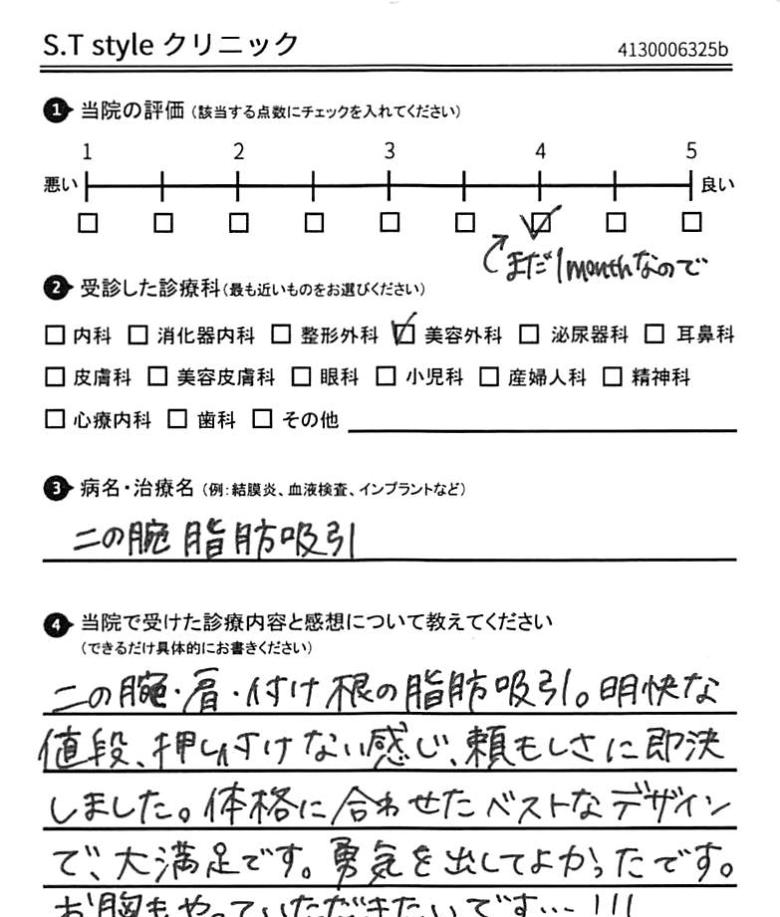 S.T style クリニック
4130006325b
1 当院の評価(該当する点数にチェックを入れてください)
1 2 3 4 5
悪い 良い
まだ1monthなので
2 受診した診療科(最も近いものをお選びください)
内科 消化器内科 整形外科 美容外科 泌尿器科 耳鼻科
皮膚科 美容皮膚科 眼科 小児科 産婦人科 精神科
心療内科 歯科 その他
3 病名・治療名(例:結膜炎、血液検査、インプラントなど)
二の腕 脂肪吸引
4 当院で受けた診療内容と感想について教えてください
(できるだけ具体的にお書きください)
二の腕・肩・付け根の脂肪吸引。明快な
値段、押し付けない感じ、頼もしさに即決
しました。体格に合わせたベストなデザイン
で、大満足です。勇気を出してよかったです。
お胸もやっていただきたいです…!!!